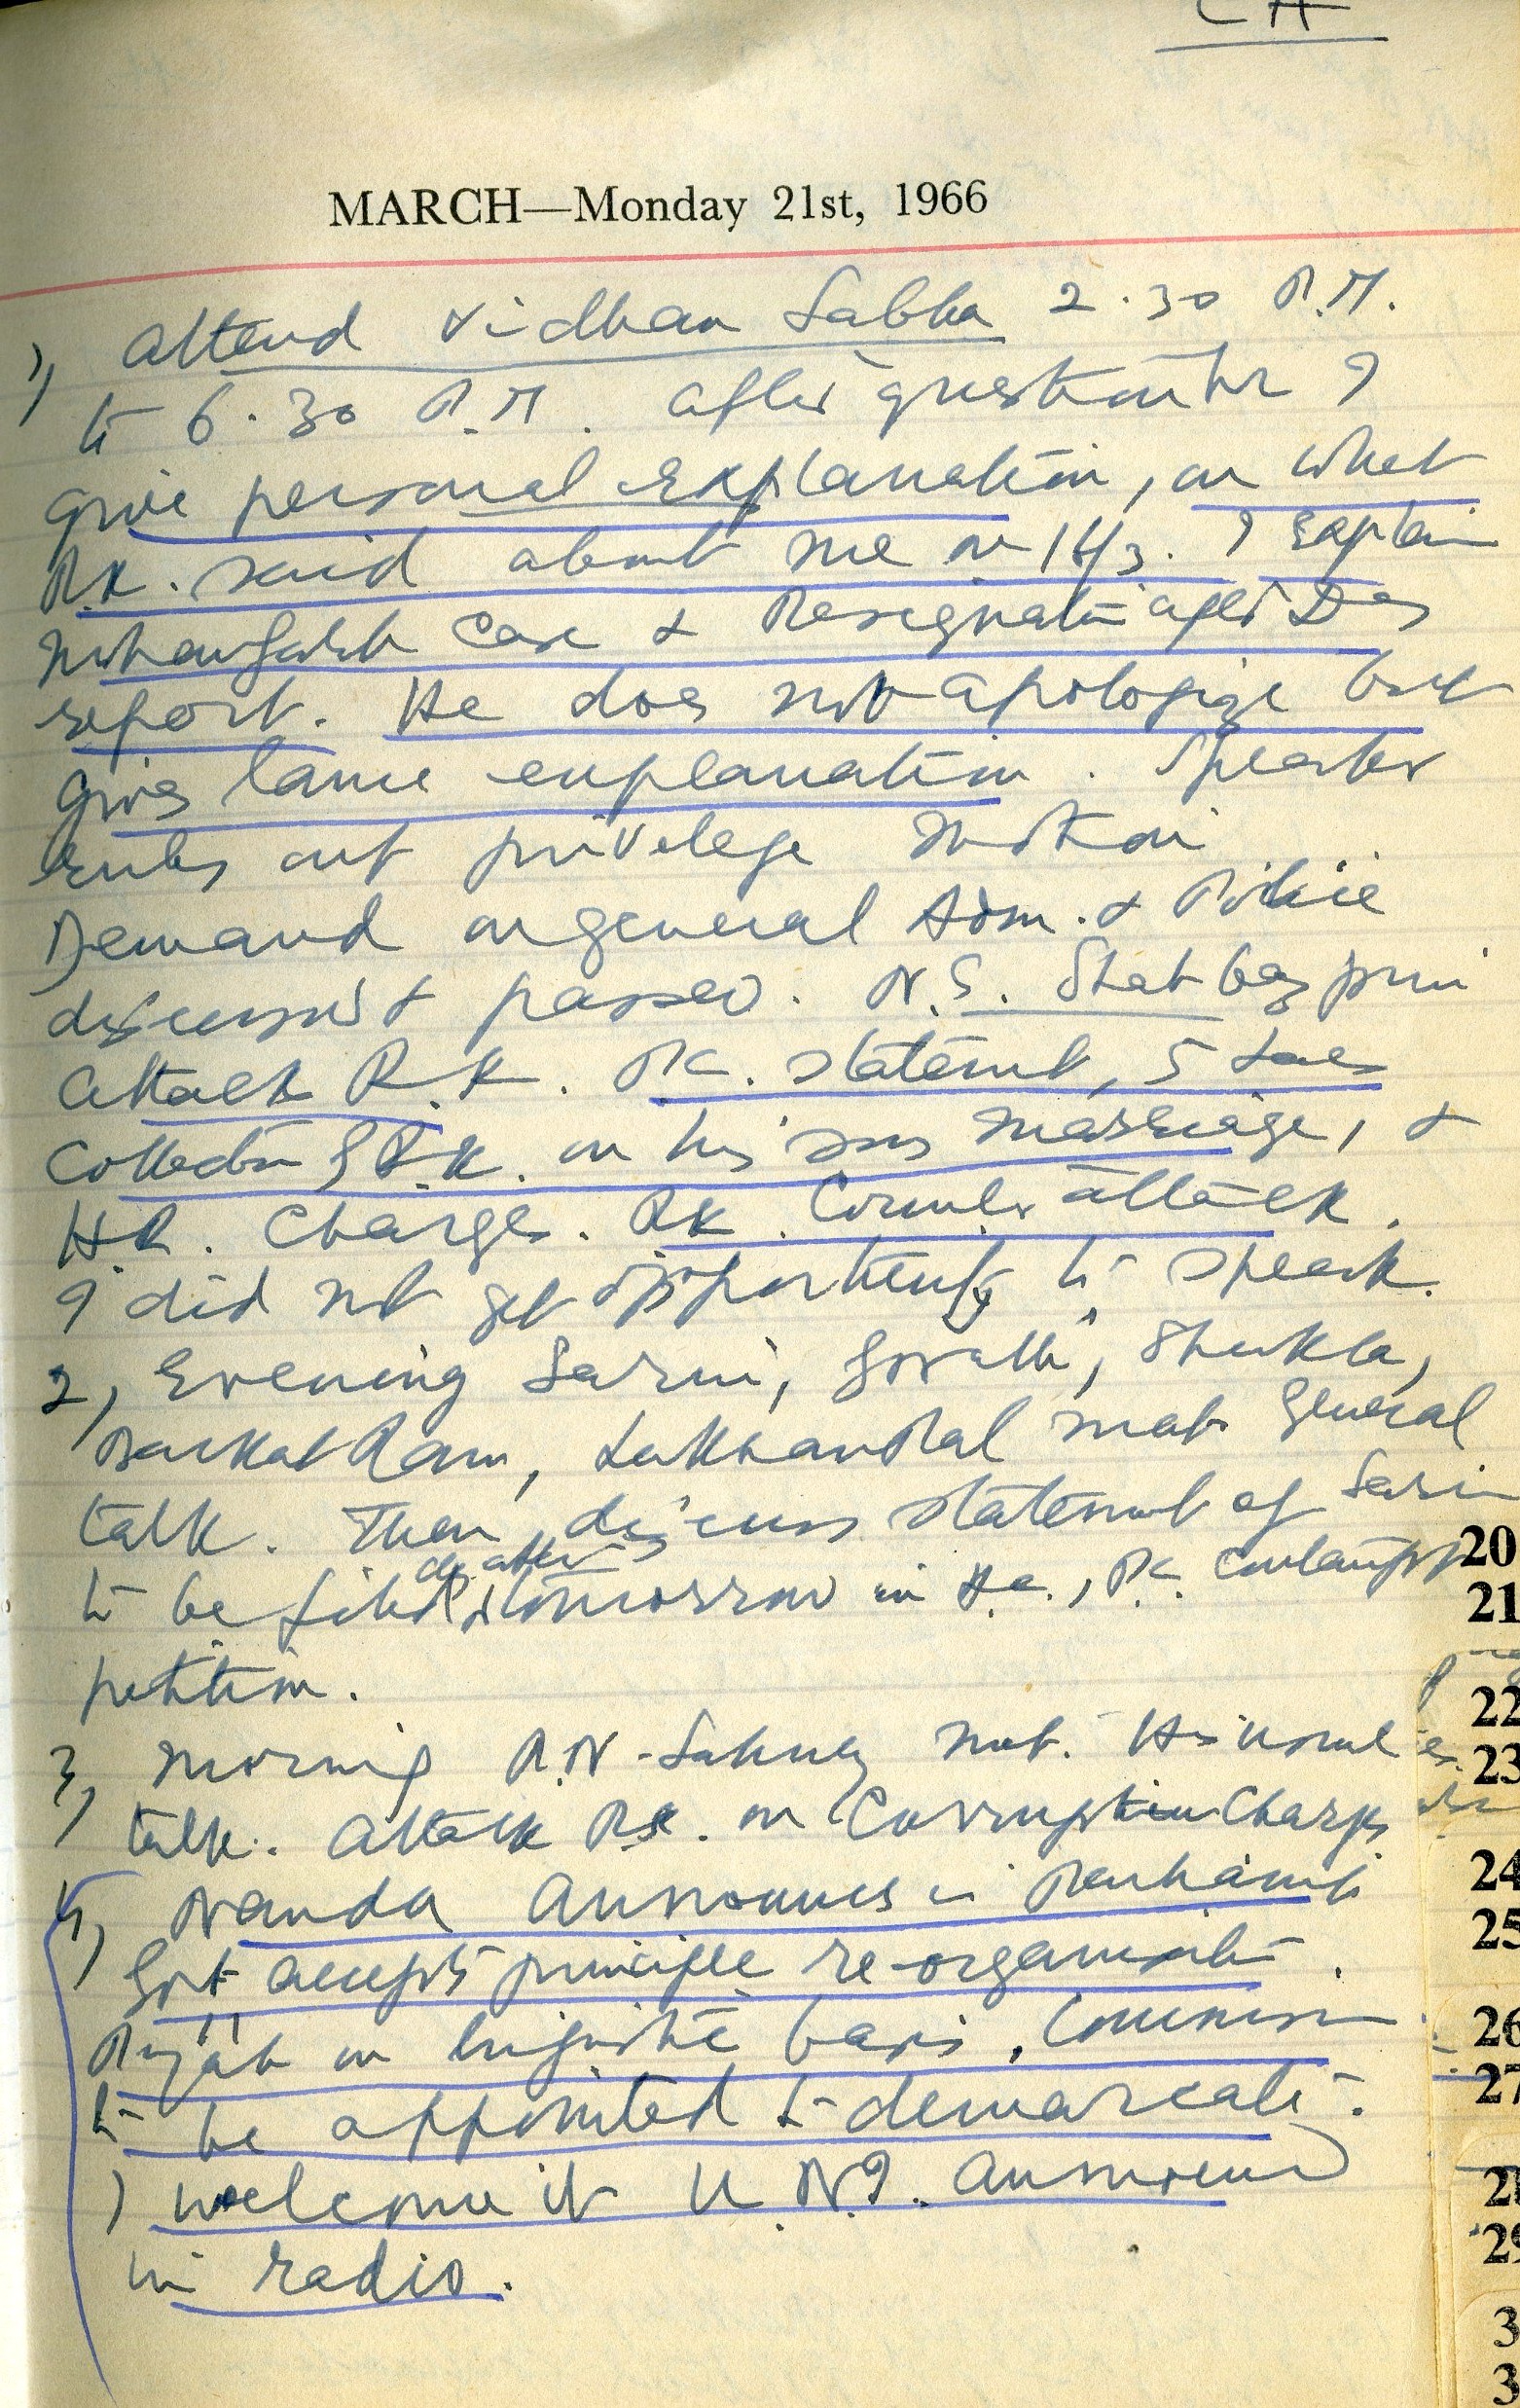 CH
MARCH—Monday 21st, 1966
1) Attend Vidhan Sabha 2.30 P.M.
to 6.30 P.M. After question hr I
give personal explanation, on what
R.K. said about me on 16/3. I explain
case & Resignation after Das
report. He does not apologize but
gives lame explanation. Speaker
rules out privelege motion
Demand on general Adm. & Police
discussed & passed. N.S. begs
Attack R.K. P.C. statement, 5 Lacs
Collection of R.K. on his sons marriage, &
H.R. Charges. R.K. Counter attack.
I did not get opportunity to speak.
2) Evening Sarin, Shukla,
Barkat Ram, Lakhanpal met General
talk. Then discuss statement of Sarin
to be filed day after tomorrow in H.C., P.C. Contempt
petition.
3) Morning R.N. Sahney met. His usual
talk. Attack R.K. on Corruption Charges
4) Nanda Announces in Parliament
Govt accepts principle re-organisation
Punjab on linguistic basis, Commission
to be appointed to demarcate.
I welcome it U.N.I. Announced
in radio.
20
21
22
23
24
25
26
27
29
3
3